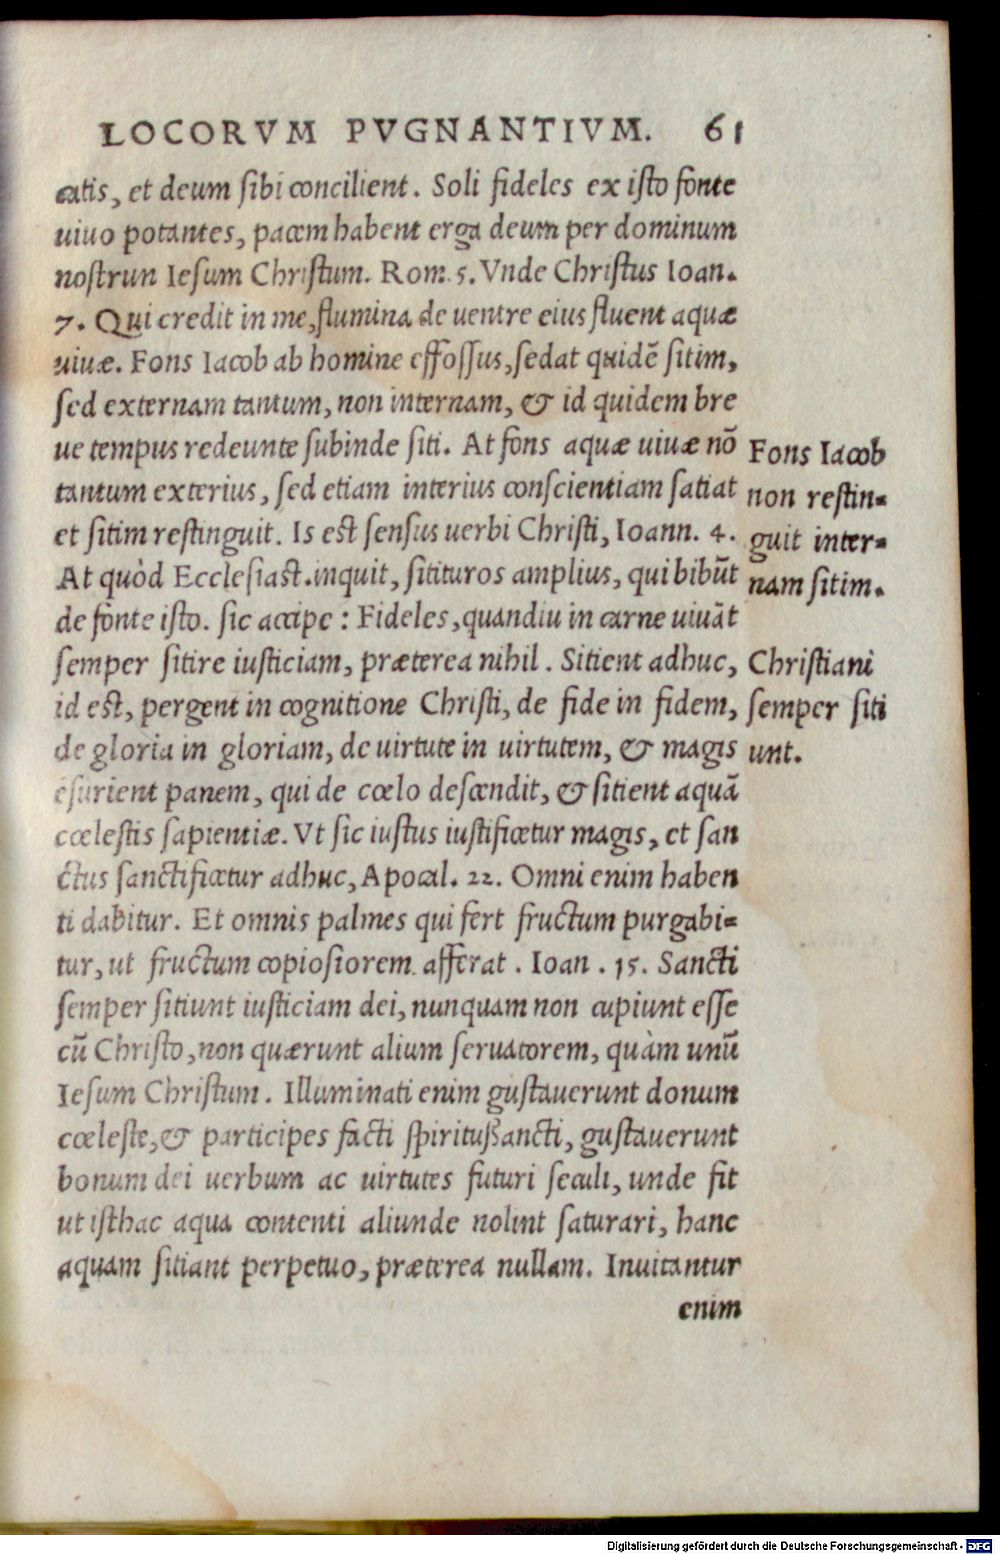 LOCORVM PVGNANTIVM. 61
catis, et deum sibi concilient. Soli fideles ex isto fonte
uiuo potantes, pacem habent erga deum per dominum
nostrun Iesum Christum. Rom. 5. Vnde Christus Ioan.
7. Qui credit in me, flumina de uentre eius fluent aquæ
uiuæ. Fons Iacob ab homine effossus, sedat quidē sitim,
sed externam tantum, non internam, & id quidem bre
ue tempus redeunte subinde siti. At fons aquæ uiuæ nō
tantum exterius, sed etiam interius conscientiam satiat
et sitim restinguit. Is est sensus uerbi Christi, Ioann. 4.
At quòd Ecclesiast. inquit, sitituros amplius, qui bibūt
de fonte isto. sic accipe : Fideles, quandiu in carne uiuāt
semper sitire iusticiam, præterea nihil. Sitient adhuc,
id est, pergent in cognitione Christi, de fide in fidem,
de gloria in gloriam, de uirtute in uirtutem, & magis
esurient panem, qui de cœlo descendit, & sitient aquā
cœlestis sapientiæ. Vt sic iustus iustificetur magis, et san
ctus sanctificetur adhuc, Apocal. 22. Omni enim haben
ti dabitur. Et omnis palmes qui fert fructum purgabi=
tur, ut fructum copiosiorem afferat. Ioan. 15. Sancti
semper sitiunt iusticiam dei, nunquam non cupiunt esse
cū Christo, non quærunt alium seruatorem, quàm unū
Iesum Christum. Illuminati enim gustauerunt donum
cœleste, & participes facti spiritußancti, gustauerunt
bonum dei uerbum ac uirtutes futuri seculi, unde fit
ut isthac aqua contenti aliunde nolint saturari, hanc
aquam sitiant perpetuo, præterea nullam. Inuitantur
enim
Fons Iacob
non restin=
guit inter=
nam sitim.
Christiani
semper siti
unt.
Digitalisierung gefördert durch die Deutsche Forschungsgemeinschaft - DFG